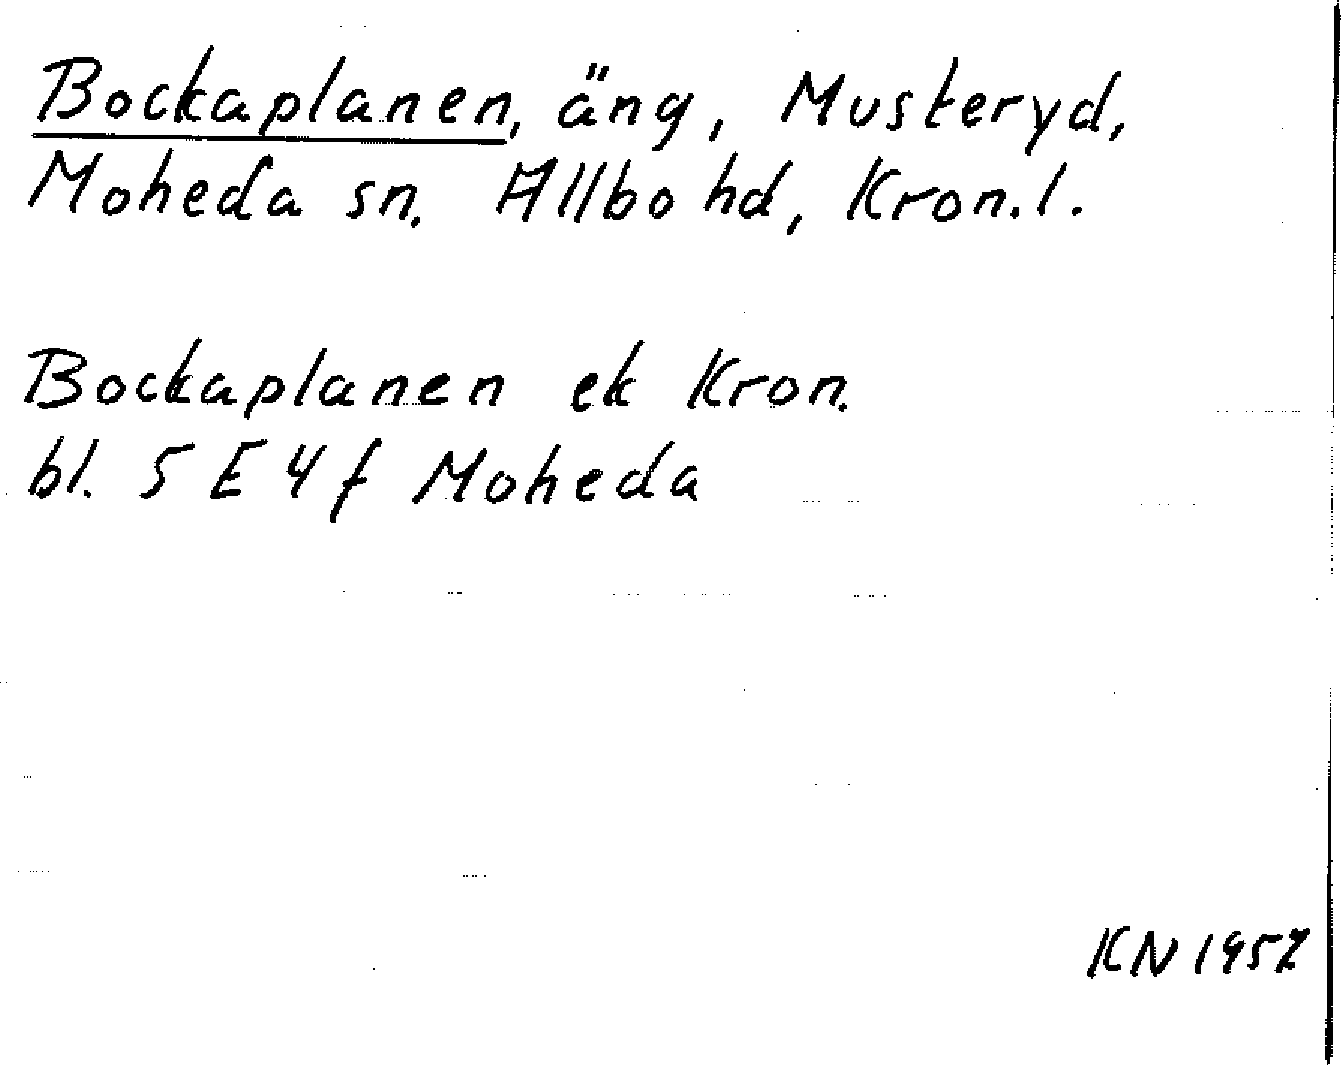 Bockaplanen, äng, Musteryd,
Moheda sn. Allbo hd, Kron.l.
Bockaplanen ek Kron.
bl. 5 E 4 f Moheda
KN 1957